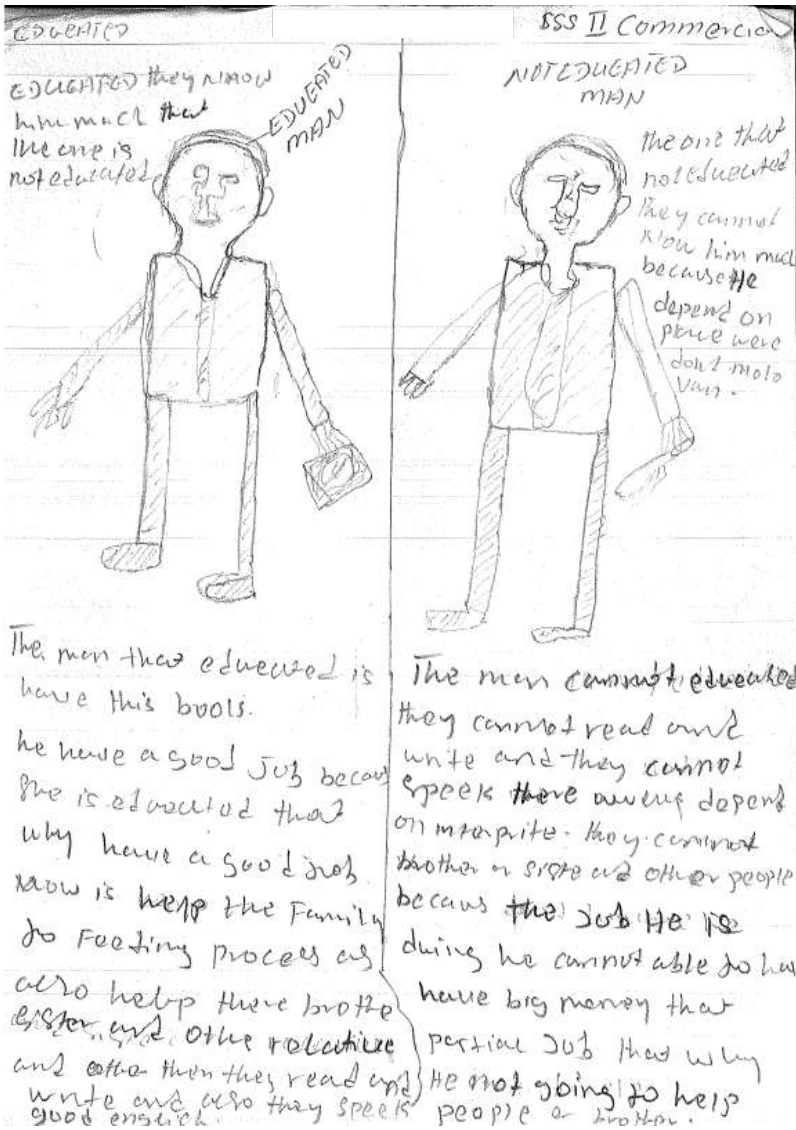 EDUEATED
EDUEATED they Nmow
him much that
the one is
not edueated
EDUEATED
MAN
The man that edueated is
have this books.
he have a good Job becaus
She is edueated that
why have a good Job
Now is help the Family
to Feeting process as
also help there brothe
sister and othe relative
and other then they read and
write and also they speek
good english.
SSS II Commercial
NOT EDUEATED
MAN
the one that
not edueated
they cannot
Know him much
because He
depend on
place were
dont moto
van.
The man cannot edueated
they cannot read and
write and they cannot
speek there depend
on interprite. they cannot
brother or siste and other people
becaus the Job He is
doing he cannot able to hav
have big money that
partial Job that why
He not going to help
people or brother.